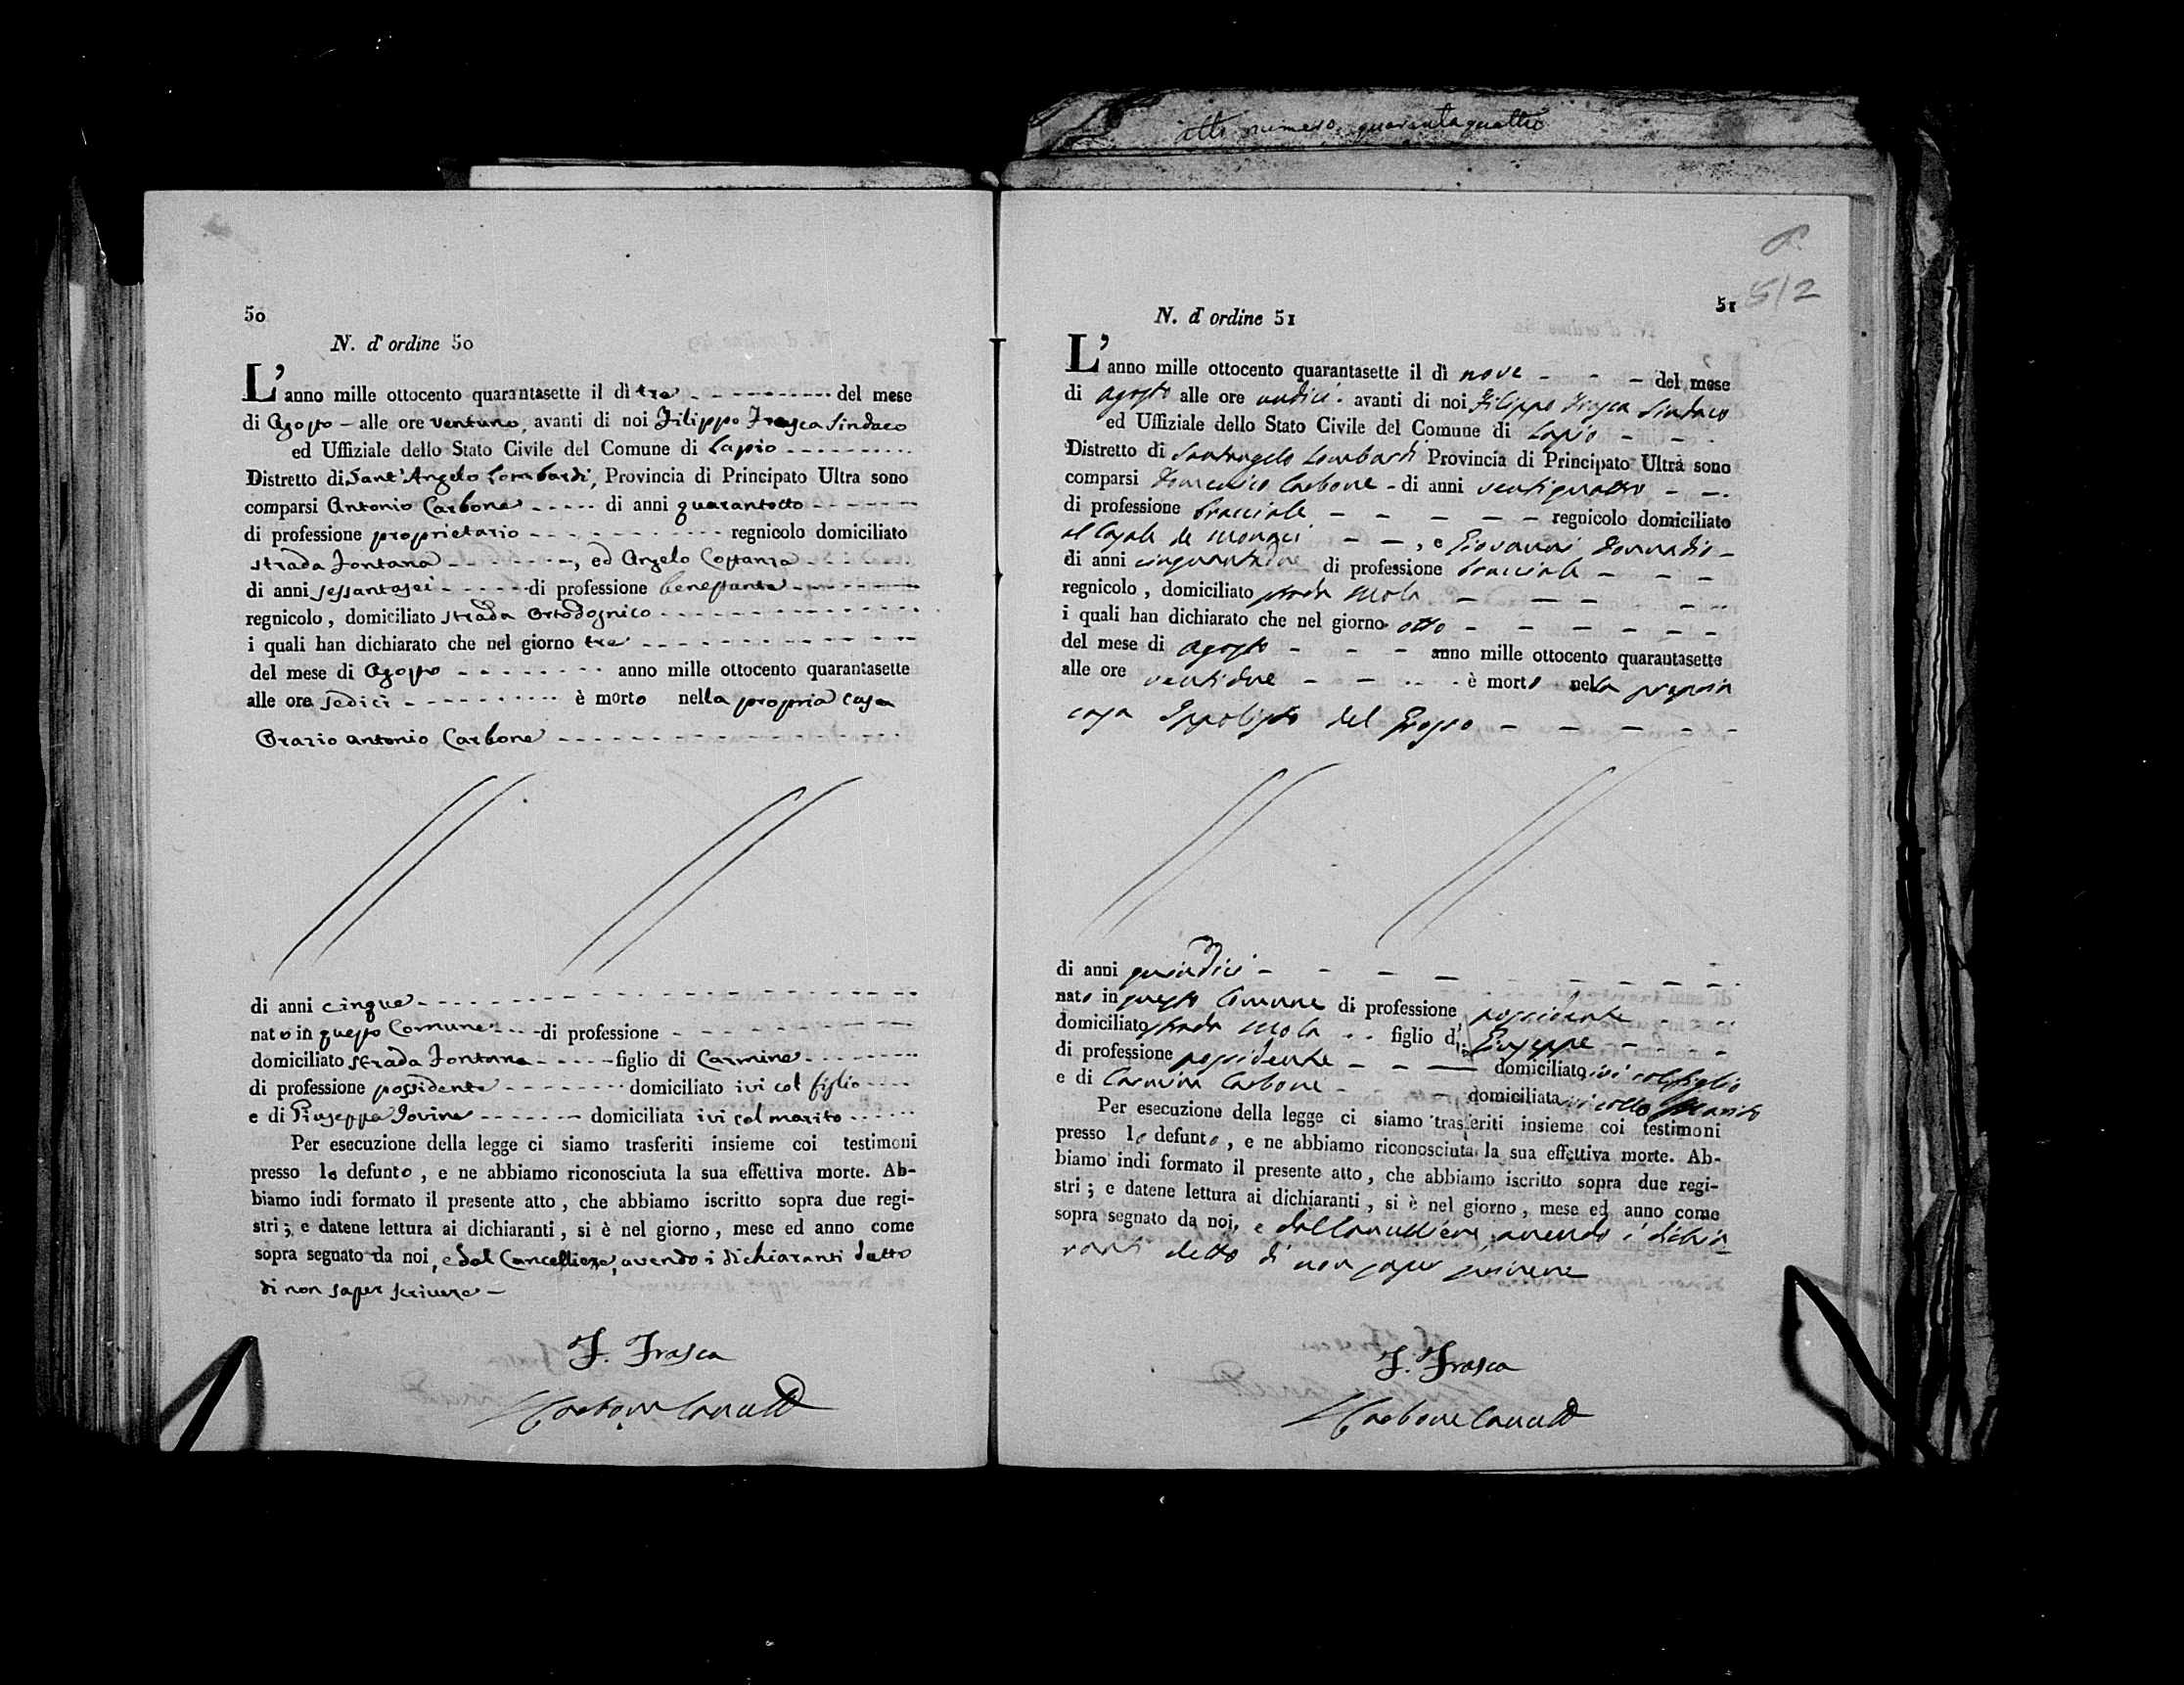 atto numero quarantaquattro
50
N. d' ordine 50
L'anno mille ottocento quarantasette il dì tre - - - del mese
di Agosto - alle ore ventuno, avanti di noi Filippo Frasca Sindaco
ed Uffiziale dello Stato Civile del Comune di Lapio - - -
Distretto di Sant'Angelo Lombardi, Provincia di Principato Ultra sono
comparsi Antonio Carbone - - - di anni quarantotto - - -
di professione proprietario - - - regnicolo domiciliato
strada Fontana - - -, ed Angelo Costanza - - -
di anni sessantasei - - - di professione benestante - - -
regnicolo, domiciliato strada Ortodognico - - -
i quali han dichiarato che nel giorno tre - - -
del mese di Agosto - - - anno mille ottocento quarantasette
alle ore sedici - - - è morto nella propria casa
Orazio Antonio Carbone - - -
di anni cinque - - -
nato in questo Comune - - - di professione - - -
domiciliato strada Fontana - - - figlio di Carmine - - -
di professione possidente - - - domiciliato ivi col figlio - - -
e di Giuseppa Iovine - - - domiciliata ivi col marito - - -
Per esecuzione della legge ci siamo trasferiti insieme coi testimoni
presso lo defunto, e ne abbiamo riconosciuta la sua effettiva morte. Ab-
biamo indi formato il presente atto, che abbiamo iscritto sopra due regi-
stri; e datene lettura ai dichiaranti, si è nel giorno, mese ed anno come
sopra segnato da noi, e dal Cancelliere, avendo i dichiaranti detto
di non saper scrivere -
F. Frasca
Carbone Cancell
51
512
N. d' ordine 51
L'anno mille ottocento quarantasette il dì nove - - - del mese
di agosto alle ore undici. avanti di noi Filippo Frasca Sindaco
ed Uffiziale dello Stato Civile del Comune di Lapio - - -
Distretto di Santangelo Lombardi Provincia di Principato Ultra sono
comparsi Domenico Carbone - di anni ventiquattro - - -
di professione bracciale - - - regnicolo domiciliato
al Casale de Monaci - - -, e Giovanni
di anni di professione bracciale - - -
regnicolo, domiciliato strada Mola - - -
i quali han dichiarato che nel giorno otto - - -
del mese di agosto - - - anno mille ottocento quarantasette
alle ore ventidue - - - è morto nella propria
casa Ippolisto del Grosso - - -
di anni quindici - - -
nato in questo Comune di professione possidente - - -
domiciliato strada Mola - - figlio di Giuseppe - - -
di professione possidente - - - domiciliato ivi col figlio
e di Carmina Carbone - - domiciliata ivi collo Marito
Per esecuzione della legge ci siamo trasferiti insieme coi testimoni
presso lo defunto, e ne abbiamo riconosciuta la sua effettiva morte. Ab-
biamo indi formato il presente atto, che abbiamo iscritto sopra due regi-
stri; e datene lettura ai dichiaranti, si è nel giorno, mese ed anno come
sopra segnato da noi, e dal Cancelliere, avendo i dichia
ranti detto di non saper scrivere
F. Frasca
Carbone Cancell